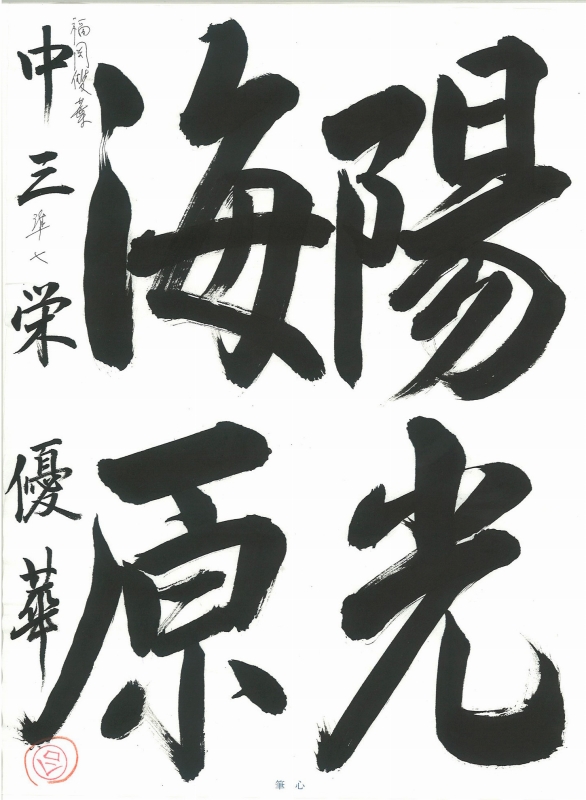 陽光
海原
福岡雙葉
中三 準七 栄優華
筆心